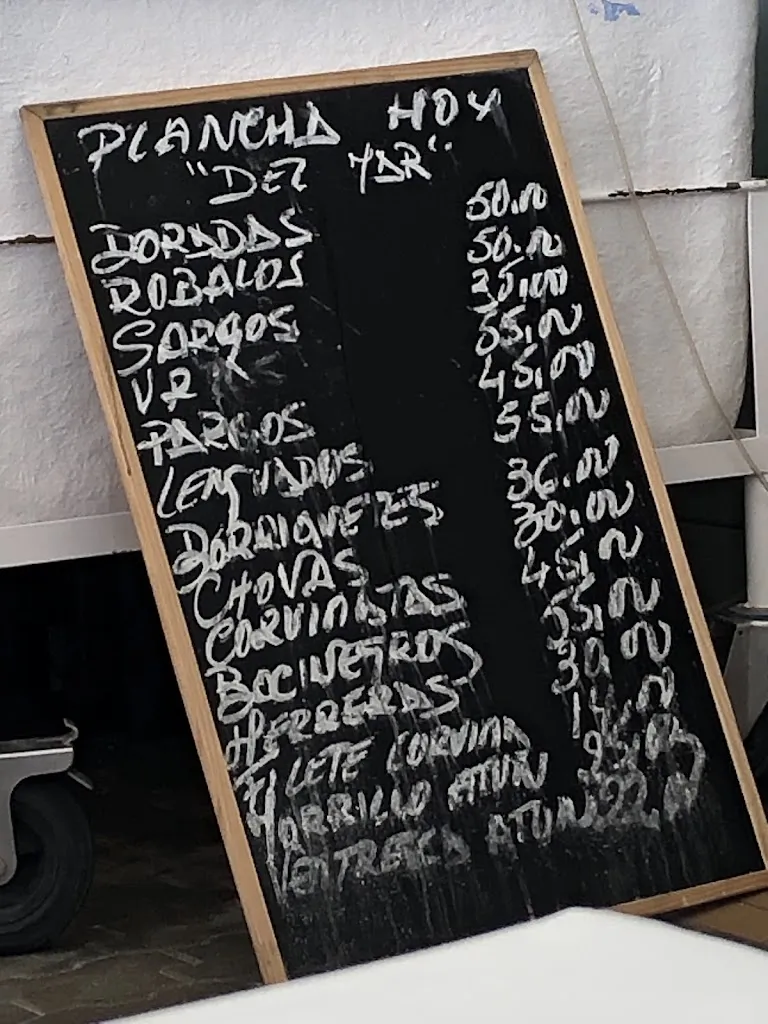 PLANCHA HOY
"DEL MAR"
DORADAS 50.00
ROBALOS 50.00
SARGOS 35,00
UR 55,00
PARGOS 45,00
LENGUADOS 55,00
BORRIQUETES 36.00
CHOVAS 30.00
CORVINATAS 45,00
BOCINEGROS 55,00
HERRERAS 30,00
FILETE CORVINA 14,00
MORRILLO ATUN
VENTRESCA ATUN 22,00